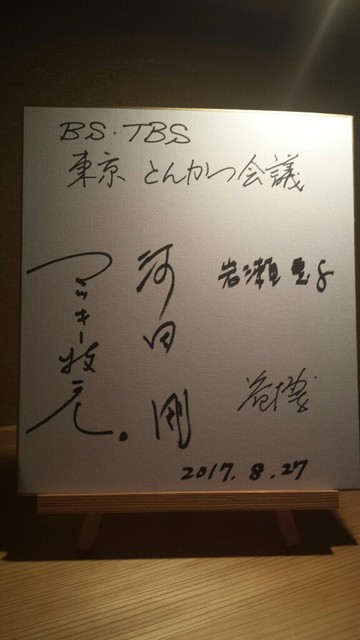 BS・TBS
東京 とんかつ会議
マッキー牧元。
河田剛
岩瀬惠子
2017.8.27